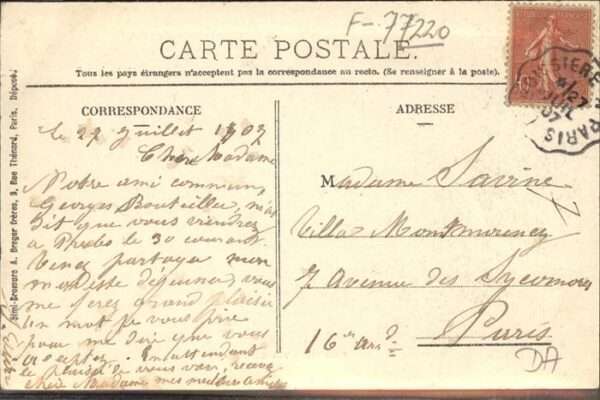 F-77220
CARTE POSTALE.
Tous les pays étrangers n'acceptent pas la correspondance au recto. (Se renseigner à la poste).
CORRESPONDANCE
ADRESSE
le 27 Juillet 1907
Chère Madame
Notre ami commun,
Georges Bouteiller, m'a
dit que vous viendrez
à le 30 courant
Venez partager mon
modeste déjeuner, vous
me ferez grand plaisir
un mot je vous prie
pour me dire que vous
acceptez. En attendant
le plaisir de vous voir, recevez
chère Madame mes meilleures amitiés
Madame Savine
Villa Montmorency
7 Avenue des Sycomores
Paris
16e arrd.
DA
Simi-Bromure A. Breger frères, 9, Rue Thénard, Paris. Déposé.
PARIS